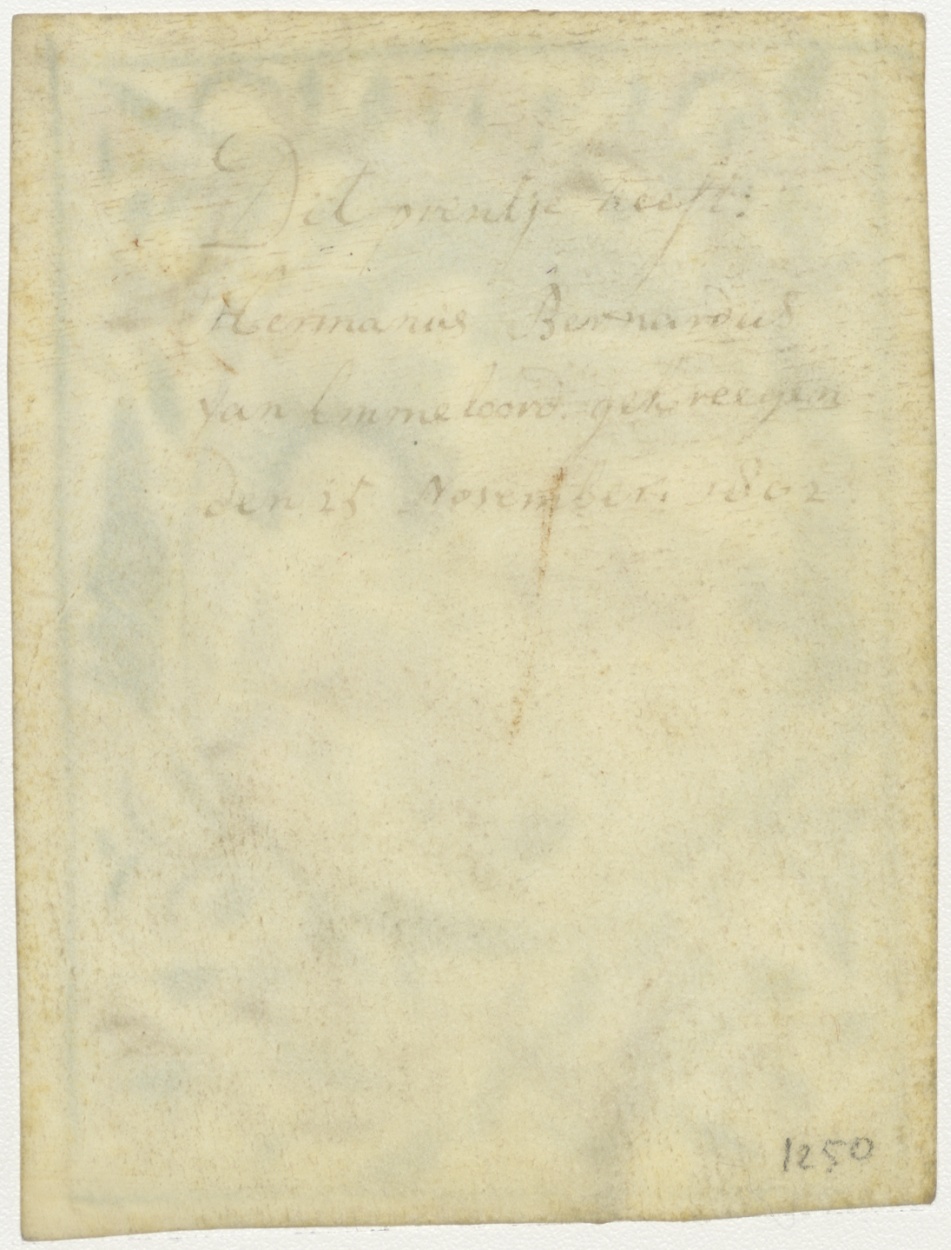 Dit prentje heeft:
Hermanus Bernardus
van Emmeloord. gekreegen
den 25 November. 1802
1250